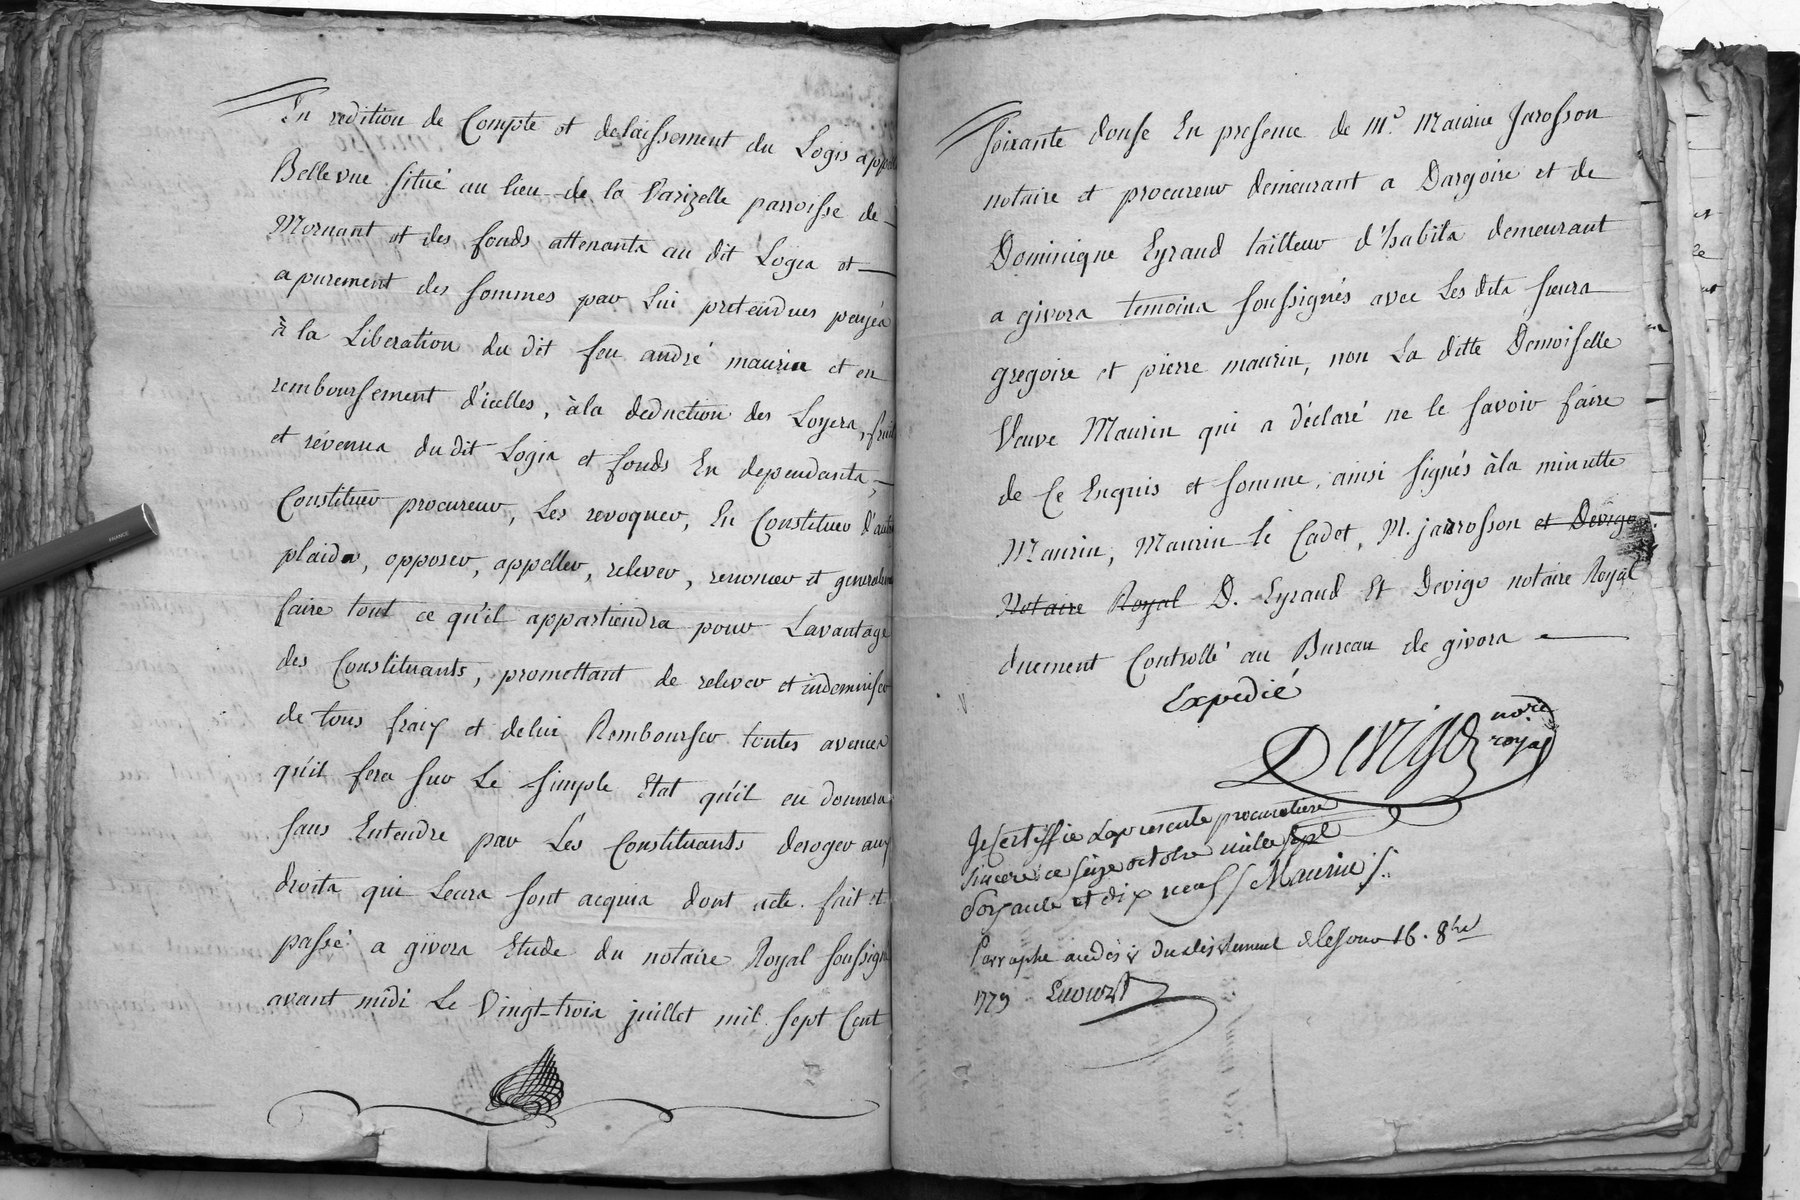 En redition de Compte et delaissement du Logis appellé
Bellevue situé au lieu de la Varizelle parroisse de
Mornant et des fonds attenants au dit Logis et
apurement des sommes par Lui pretendues payés
à la Liberation du dit feu andré maurin et en
remboursement d'icelles, à la deduction des Loyers, fruits
et révenus du dit Logis et fonds En dependants,
Constituer procureur, Les revoquer, En Constituer d'autres
plaider, opposer, appeller, relever, renoncer et generalement
faire tout ce qu'il appartiendra pour Lavantage
des Constituants, promettant de relever et indemniser
de tous fraix et delui Rembourser toutes avences
qu'il fera sur Le simple Etat qu'il en donnera
sans Entendre par Les Constituants deroger aux
droits qui Leurs sont acquis dont acte. fait et
passé a givors Etude du notaire Royal soussigné
avant midi Le Vingt-trois juillet mil sept Cent
soixante douse En presence de Me. Maurice Jarosson
notaire et procureur demeurant a Dargoire et de
Dominique Eyraud tailleur d'habits demeurant
a givors temoins soussignés avec Les dits sieurs
gregoire et pierre maurin, non La ditte Demoiselle
Veuve Maurin qui a déclaré ne le savoir faire
de Ce Enquis et somme, ainsi signés à la minutte
Maurin, Maurin le Cadet, M. jarrosson et Devigo
Notaire Royal D. Eyraud Et Devigo notaire Royal
duement Controllé au Bureau de givors
Expedié
Devigo nore
royal
Je Certiffie Lapresente procuration
sincere ce seize octobre mille sept
soixante et dix neuf / Maurin /.
Parraphe audesir du deistement de Cejour 16. 8bre
1779